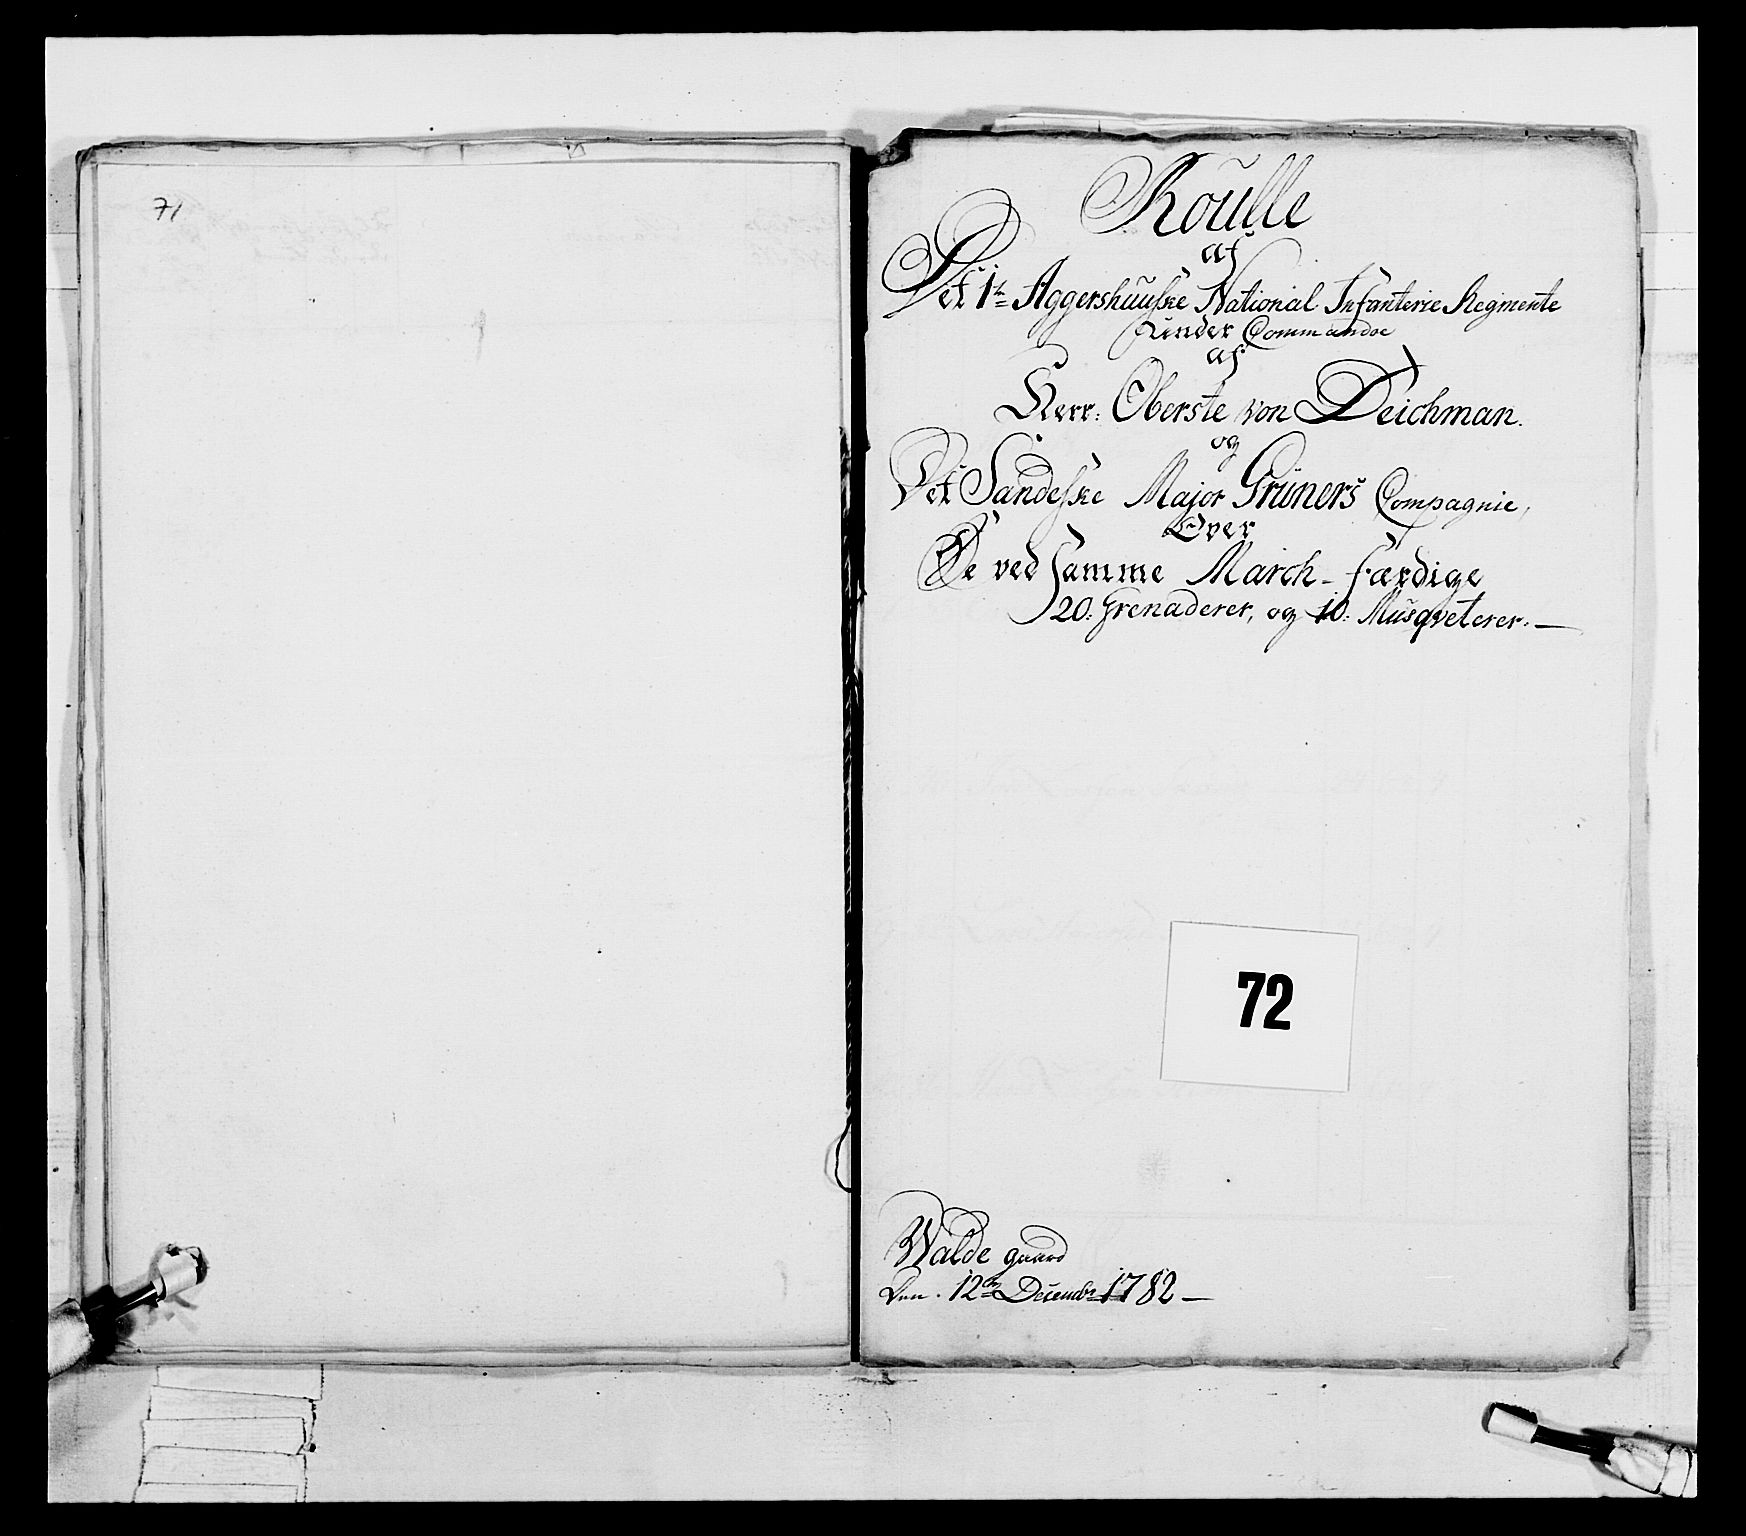 71
Roulle
af
Det 1te Aggershuuske National Infanterie Regimente
under Commandoe
af
Herr: Oberste von Deichman.
og
Det Sandeske Major Grüners Compagnie,
Over
De ved samme March-færdige
20: Grenaderer, og 10: Musqveterer. —
72
Walde gaard
den. 12te Decembr 1782 —